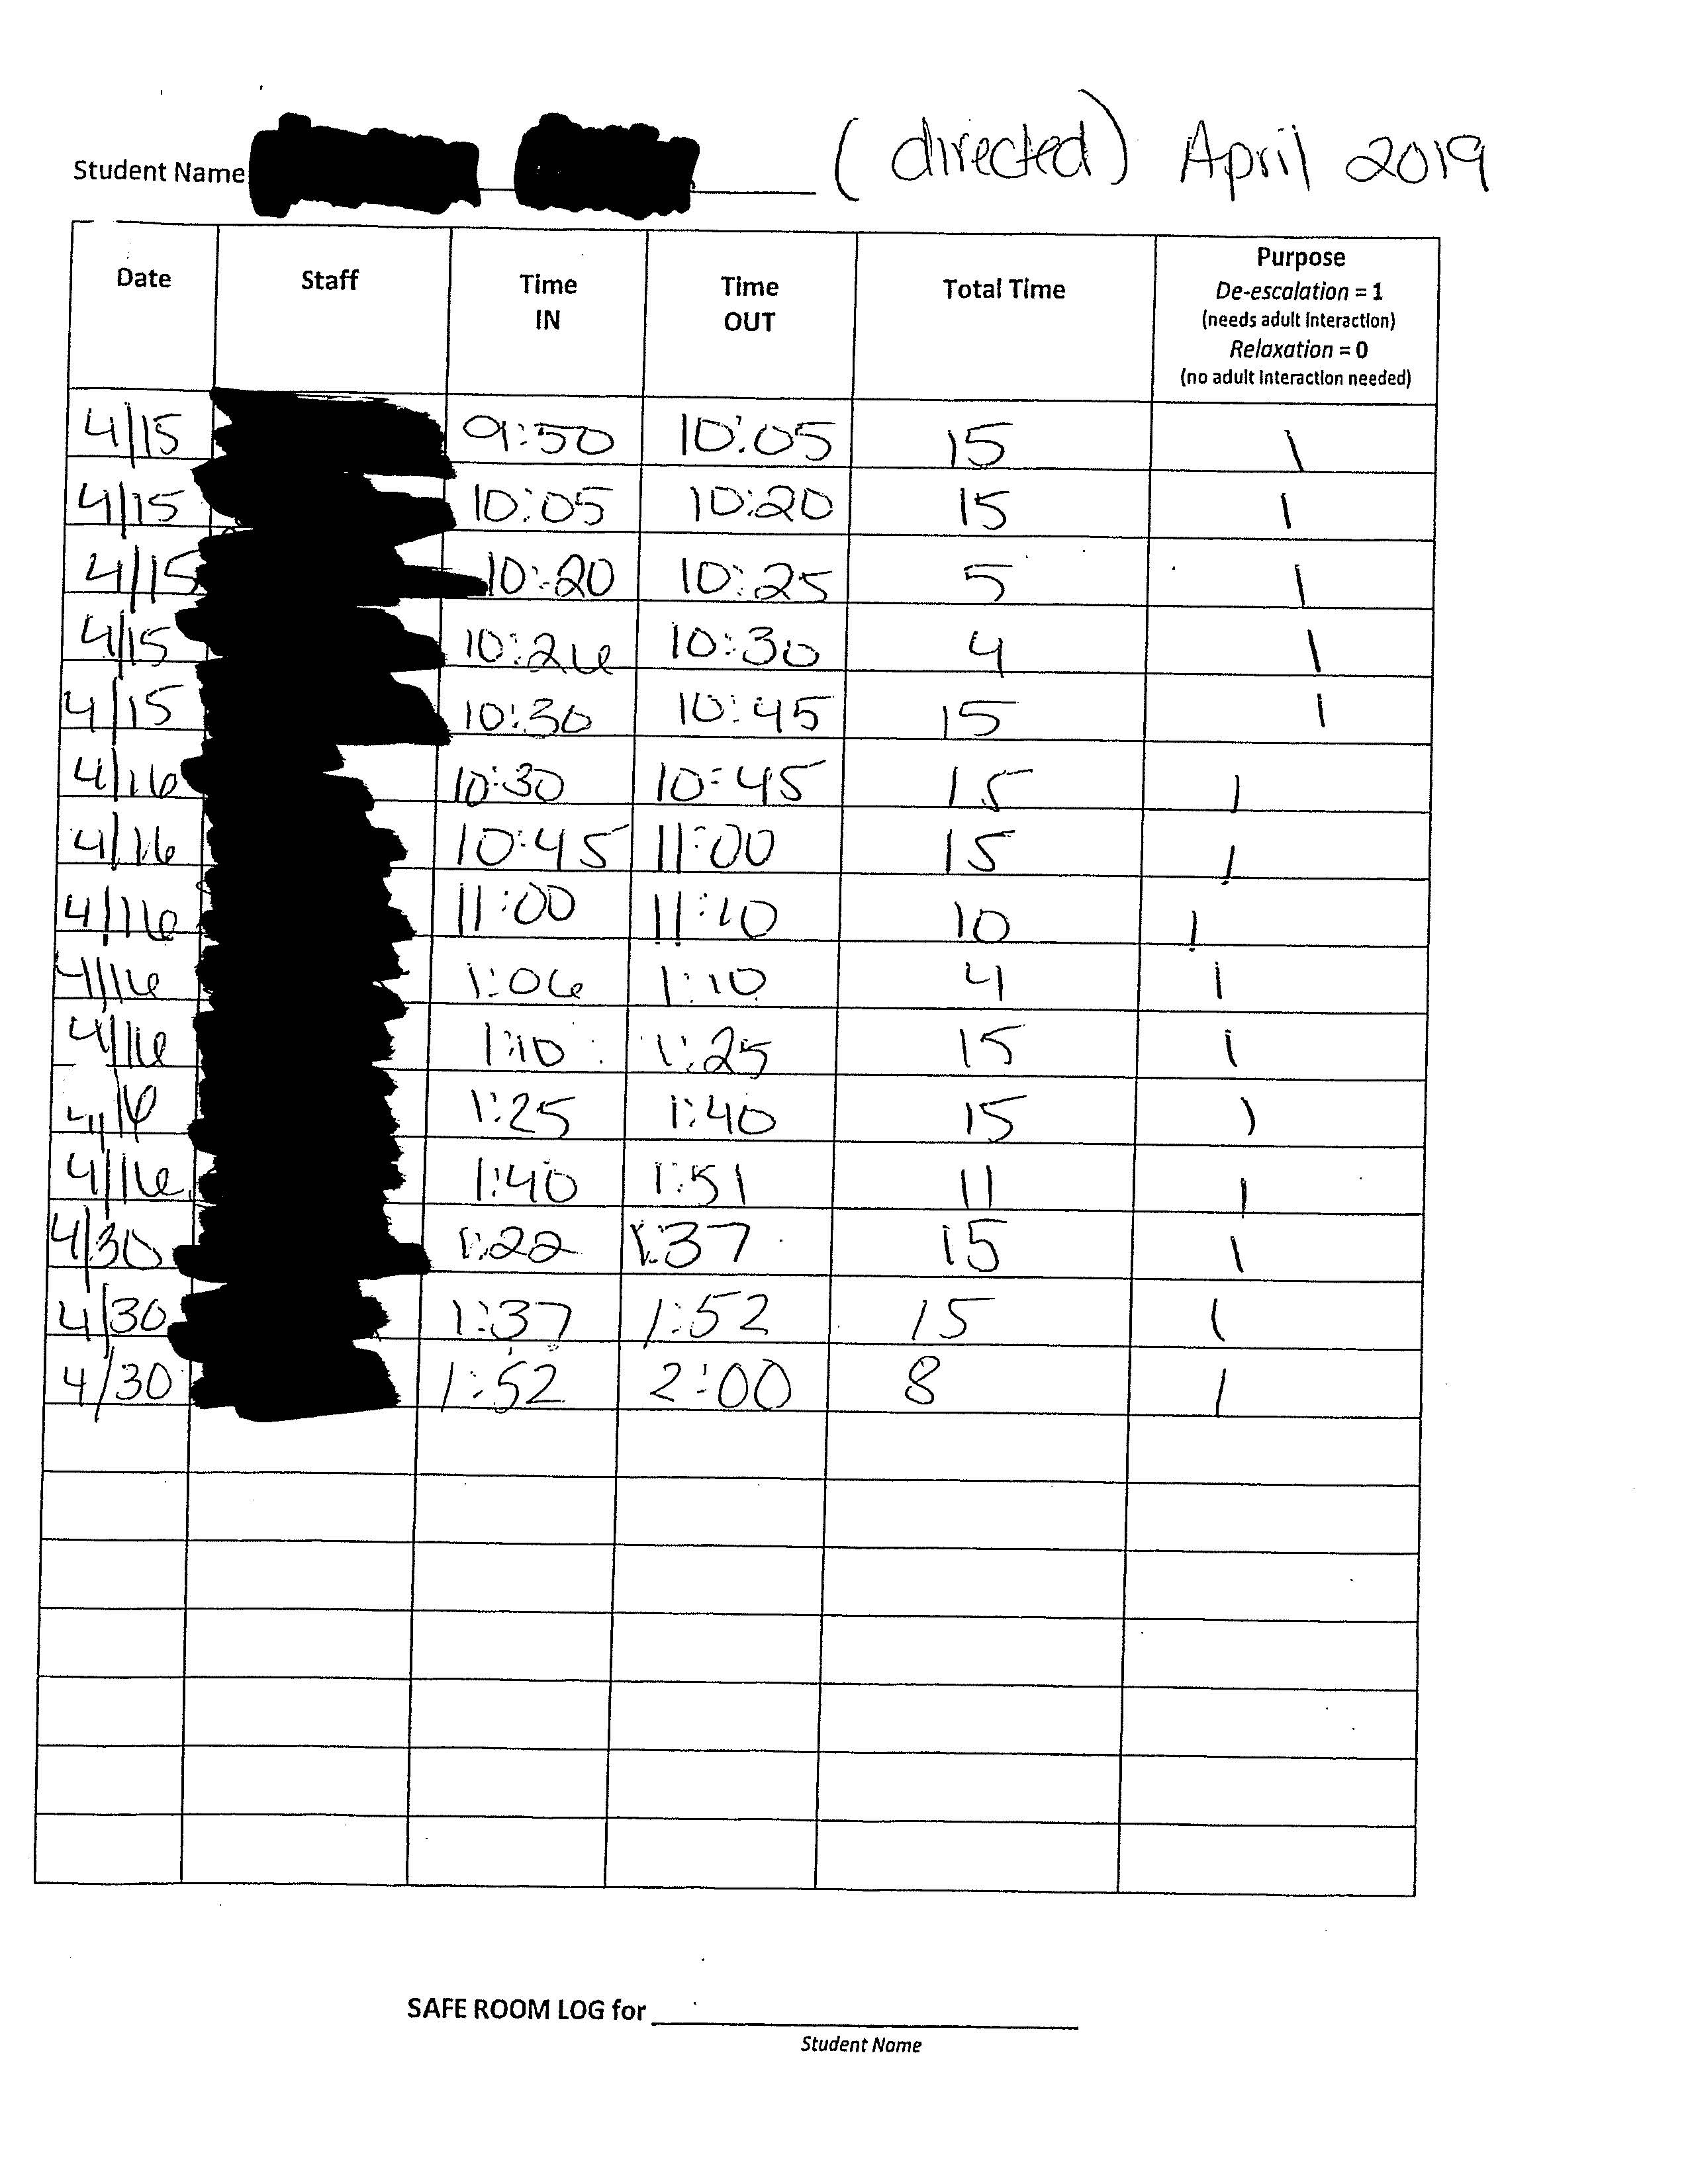 Student Name (directed) April 2019
Date Staff Time IN Time OUT Total Time Purpose
De-escalation = 1
(needs adult interaction)
Relaxation = 0
(no adult interaction needed)
4/15 9:50 10:05 15 1
4/15 10:05 10:20 15 1
4/15 10:20 10:25 5 1
4/15 10:26 10:30 4 1
4/15 10:30 10:45 15 1
4/16 10:30 10:45 15 1
4/16 10:45 11:00 15 1
4/16 11:00 11:10 10 1
4/16 1:06 1:10 4 1
4/16 1:10 1:25 15 1
4/16 1:25 1:40 15 1
4/16 1:40 1:51 11 1
4/30 1:22 1:37 15 1
4/30 1:37 1:52 15 1
4/30 1:52 2:00 8 1
SAFE ROOM LOG for
Student Name